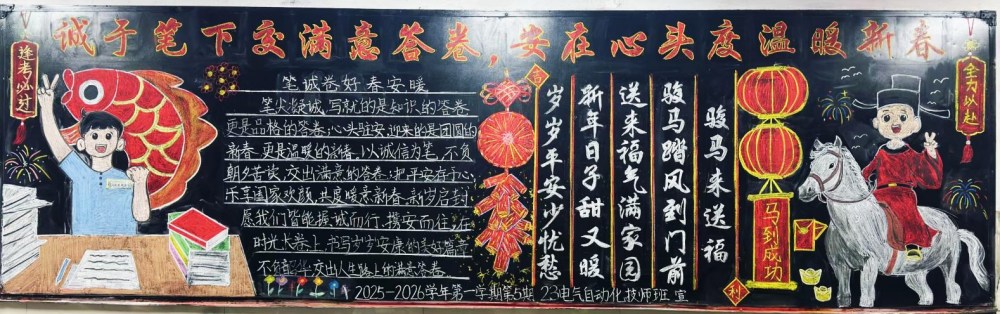 诚于笔下交满意答卷,安在心头度温暖新春
逢考必过
笔诚卷好春安暖
笔尖绽诚,写就的是知识的答卷
更是品格的答卷;心头驻安,迎来的是团圆的
新春,更是温暖的新春。以诚信为笔,不负
朝夕苦读,交出满意的答卷;把平安存于心,
乐享阖家欢颜,共度暖意新春。新岁启封
愿我们皆能握诚而行,携安而往,在
时光长卷上,书写岁岁安康的美好篇章
不负韶华,交出人生路上的满意答卷
吉
骏马来送福
骏马踏风到门前
送来福气满家园
新年日子甜又暖
岁岁平安少忧愁
利
马到成功
全力以赴
2025-2026学年第一学期第5期 23电气自动化技师班 宣